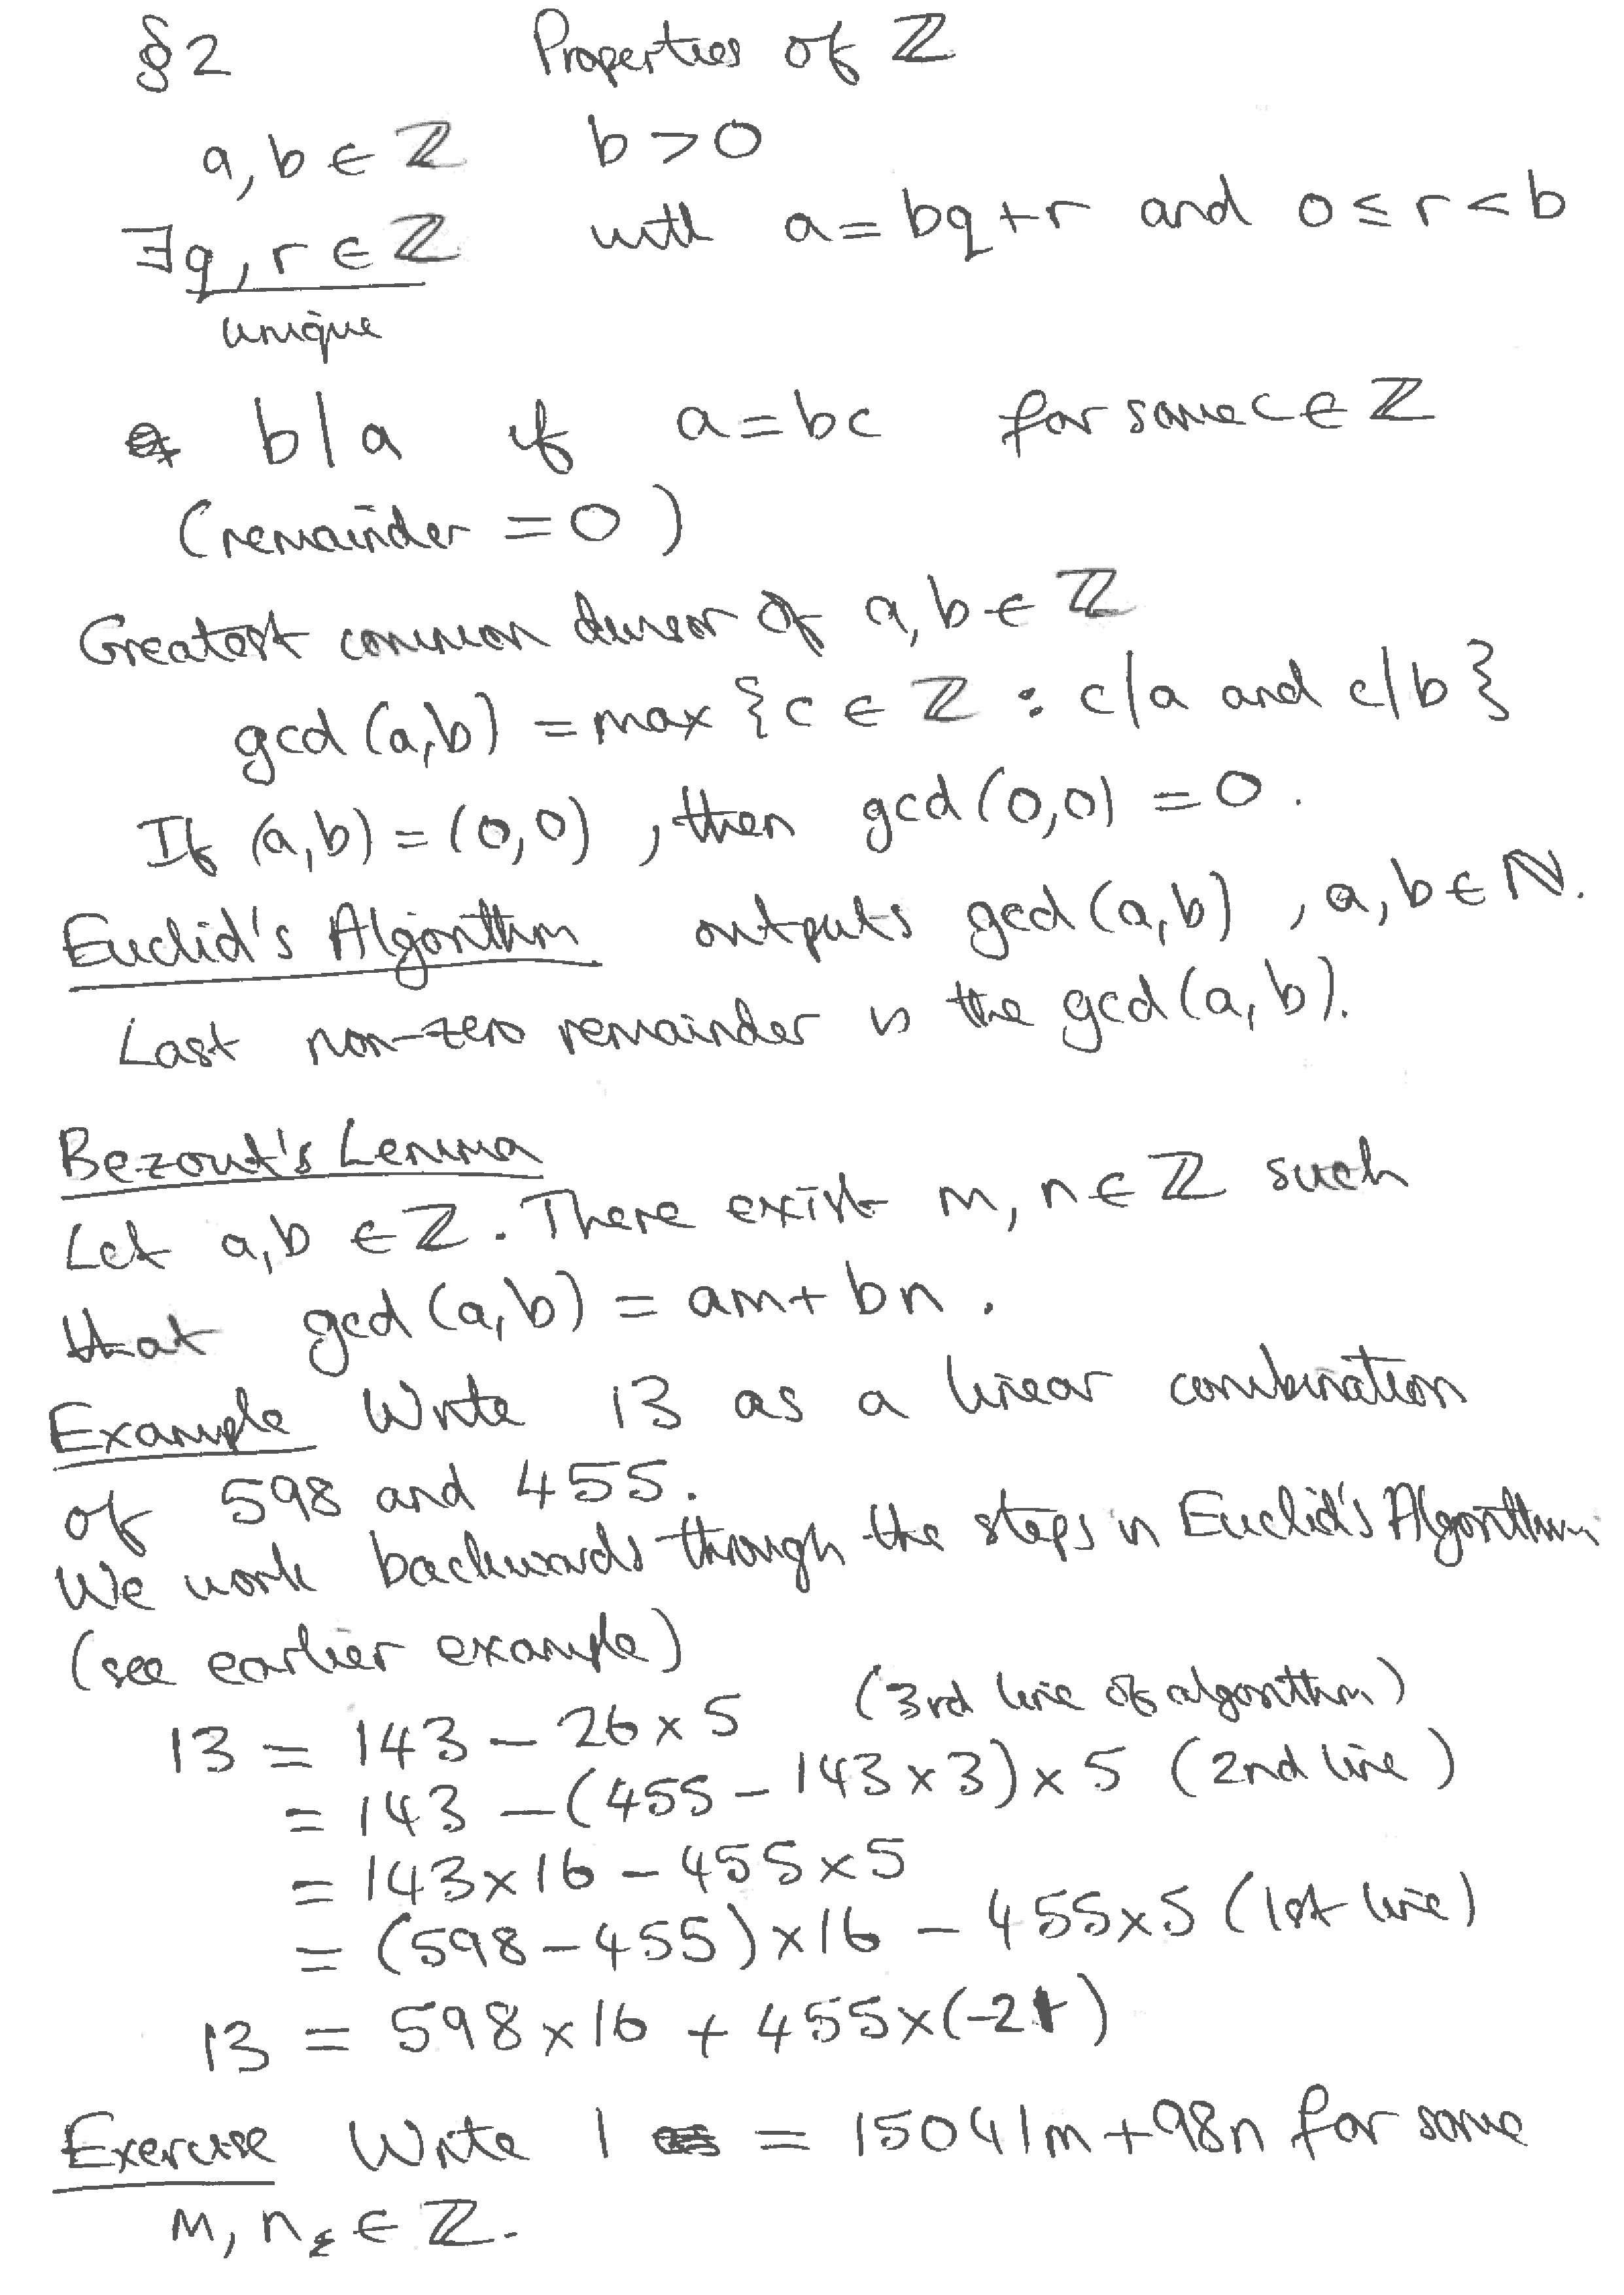 §2 Properties of ℤ
a, b ∈ ℤ b > 0
∃ q, r ∈ ℤ with a = bq + r and 0 ≤ r < b
unique
b | a if a = bc for some c ∈ ℤ
(remainder = 0)
Greatest common divisor of a, b ∈ ℤ
gcd (a,b) = max {c ∈ ℤ : c|a and c|b}
If (a,b) = (0,0), then gcd (0,0) = 0.
Euclid's Algorithm outputs gcd (a,b), a, b ∈ ℕ.
Last non-zero remainder is the gcd (a,b).
Bezout's Lemma
Let a,b ∈ ℤ. There exist m, n ∈ ℤ such
that gcd (a,b) = am + bn.
Example Write 13 as a linear combination
of 598 and 455.
We work backwards through the steps in Euclid's Algorithm
(see earlier example)
13 = 143 − 26 × 5 (3rd line of algorithm)
= 143 − (455 − 143 × 3) × 5 (2nd line)
= 143 × 16 − 455 × 5
= (598 − 455) × 16 − 455 × 5 (1st line)
13 = 598 × 16 + 455 × (−21)
Exercise Write 1 = 15041m + 98n for some
m, n ∈ ℤ.